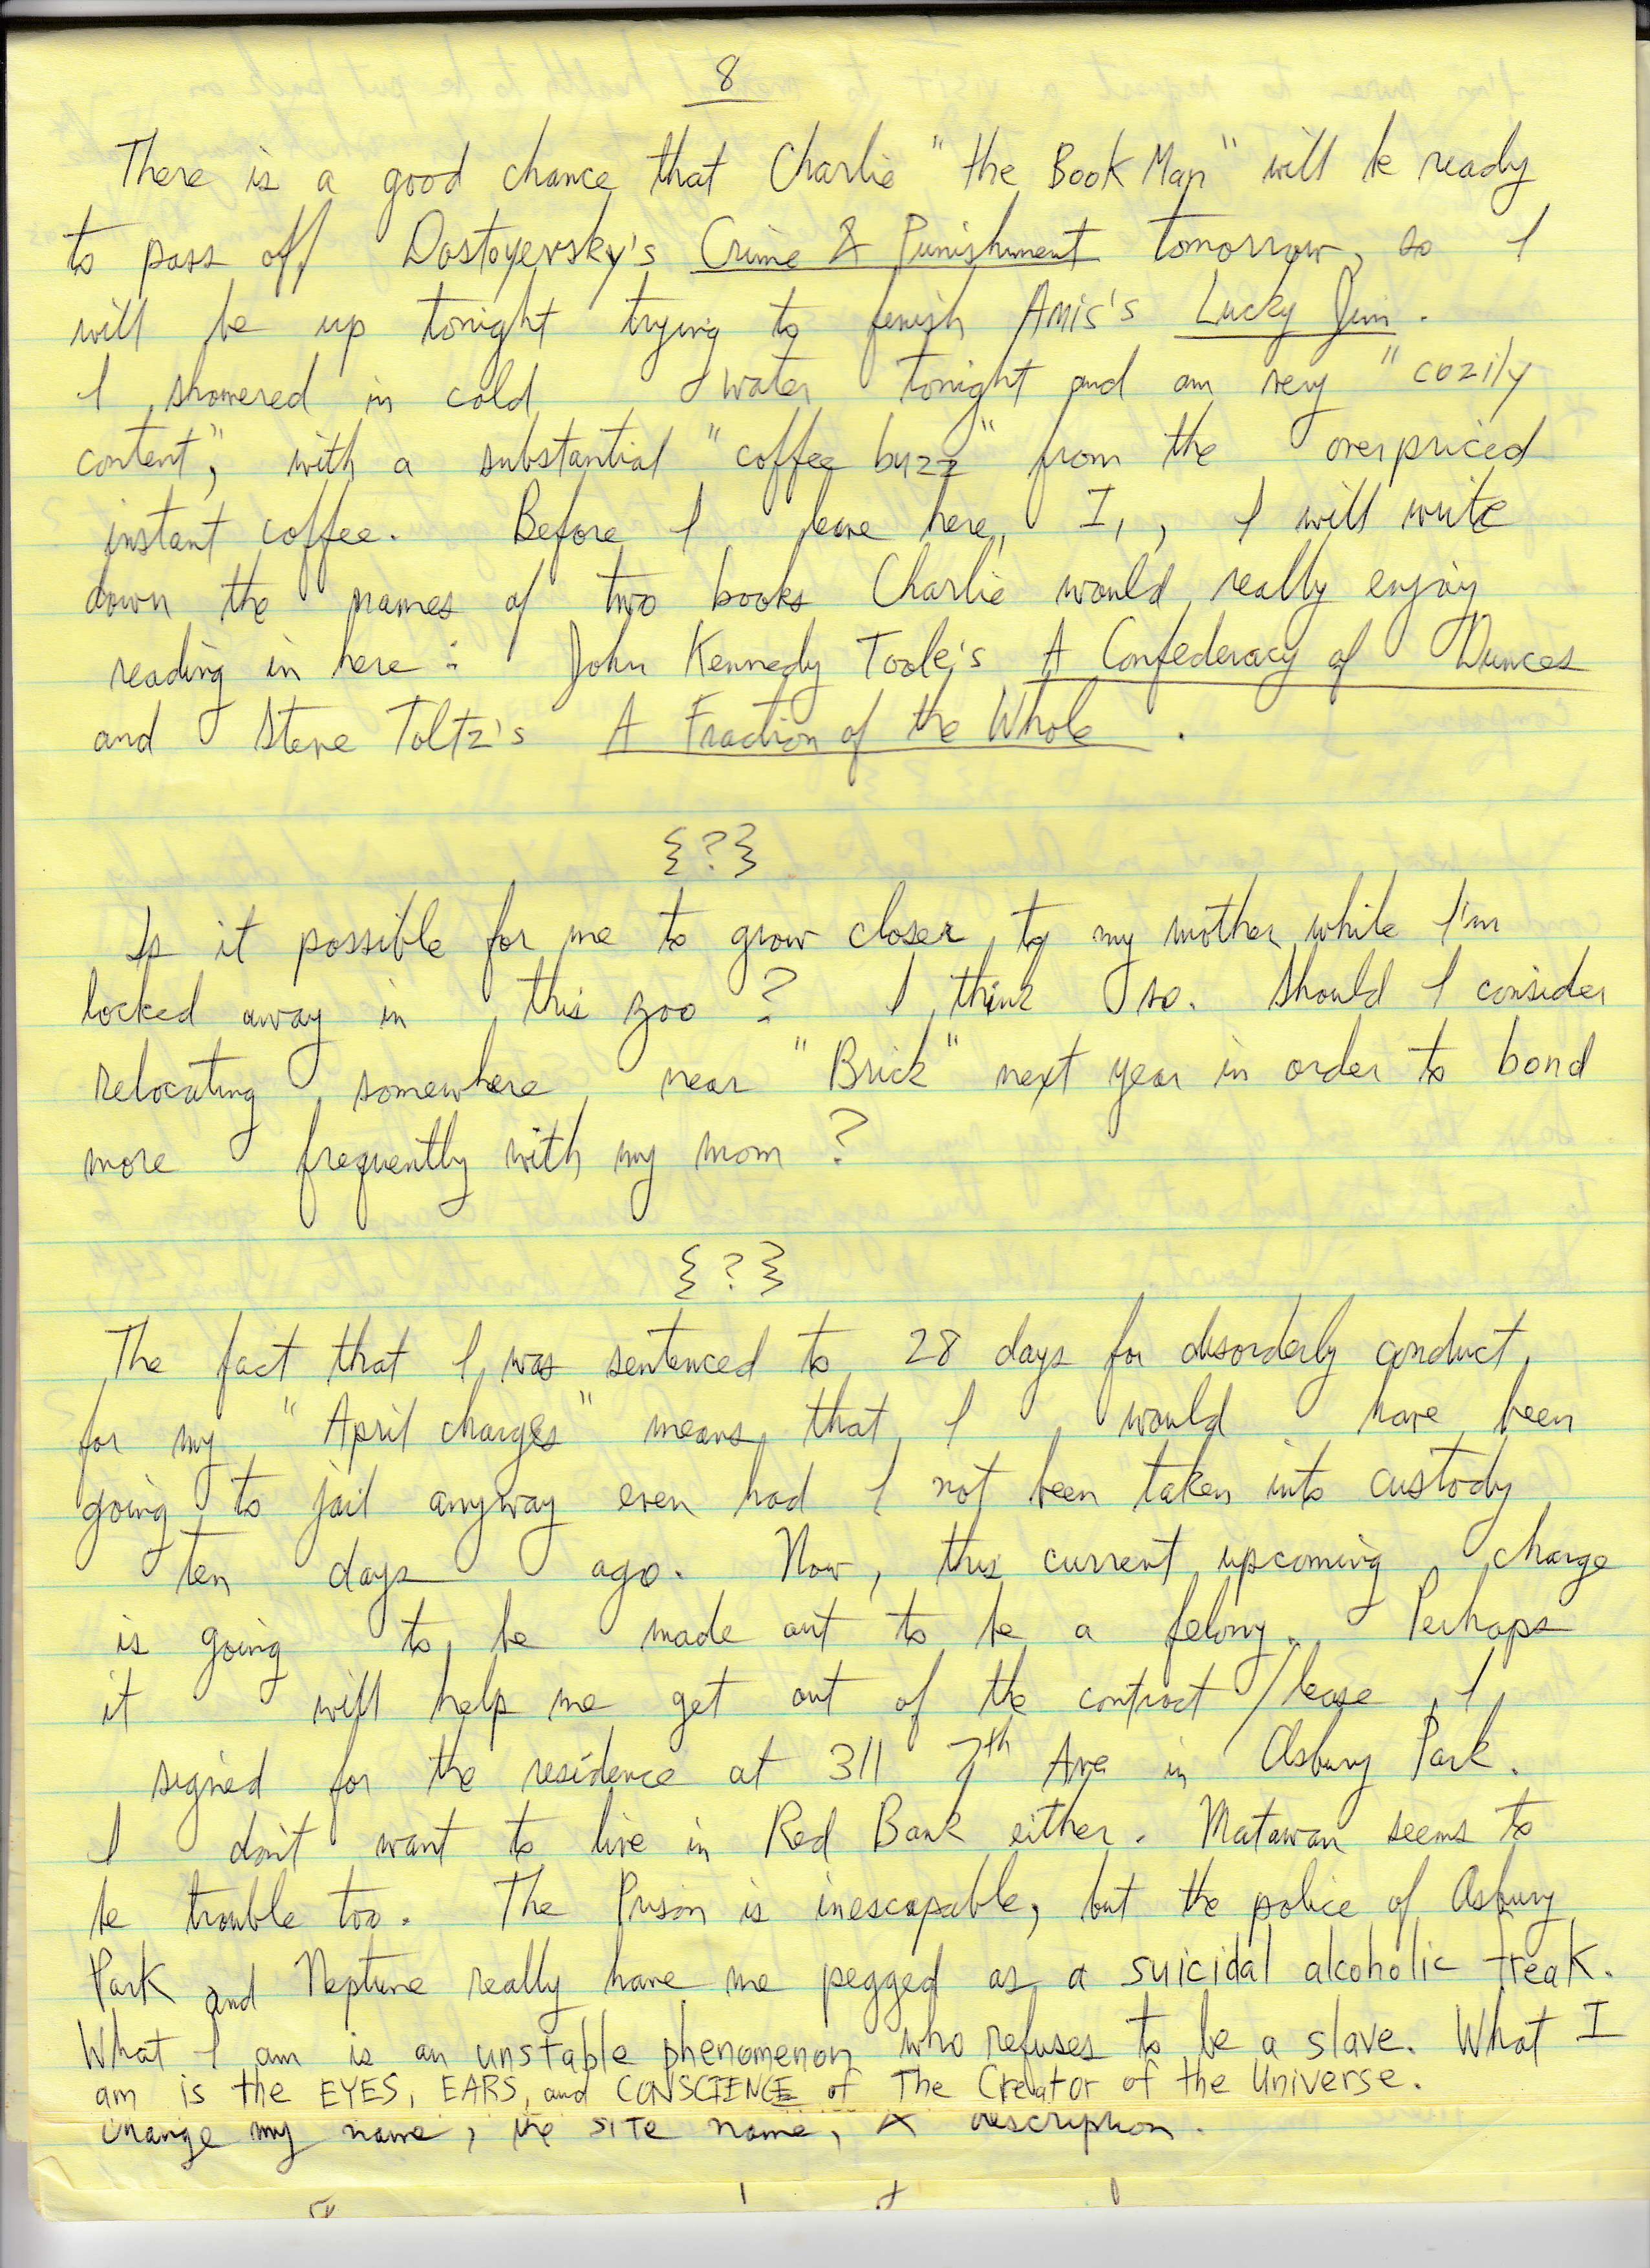 8
There is a good chance that Charlie "the Book Man" will be ready
to pass off Dostoyevsky's Crime & Punishment tomorrow, so I
will be up tonight trying to finish Amis's Lucky Jim.
I showered in cold water tonight and am very "cozily
content," with a substantial "coffee buzz" from the overpriced
instant coffee. Before I leave here, I, , I will write
down the names of two books Charlie would really enjoy
reading in here: John Kennedy Toole's A Confederacy of Dunces
and Steve Toltz's A Fraction of the Whole.
{?}
Is it possible for me to grow closer to my mother while I'm
locked away in this zoo? I think so. Should I consider
relocating somewhere near "Brick" next year in order to bond
more frequently with my mom?
{?}
The fact that I was sentenced to 28 days for disorderly conduct
for my "April charges" means that I would have been
going to jail anyway even had I not been taken into custody
ten days ago. Now, this current upcoming charge
is going to be made out to be a felony. Perhaps
it will help me get out of the contract/lease I
signed for the residence at 311 7th Ave in Asbury Park.
I don't want to live in Red Bank either. Matawan seems to
be trouble too. The Prison is inescapable, but the police of Asbury
Park and Neptune really have me pegged as a suicidal alcoholic freak.
What I am is an unstable phenomenon who refuses to be a slave. What I
am is the EYES, EARS, and CONSCIENCE of The Creator of the Universe.
change my name, the SITE name, & description.